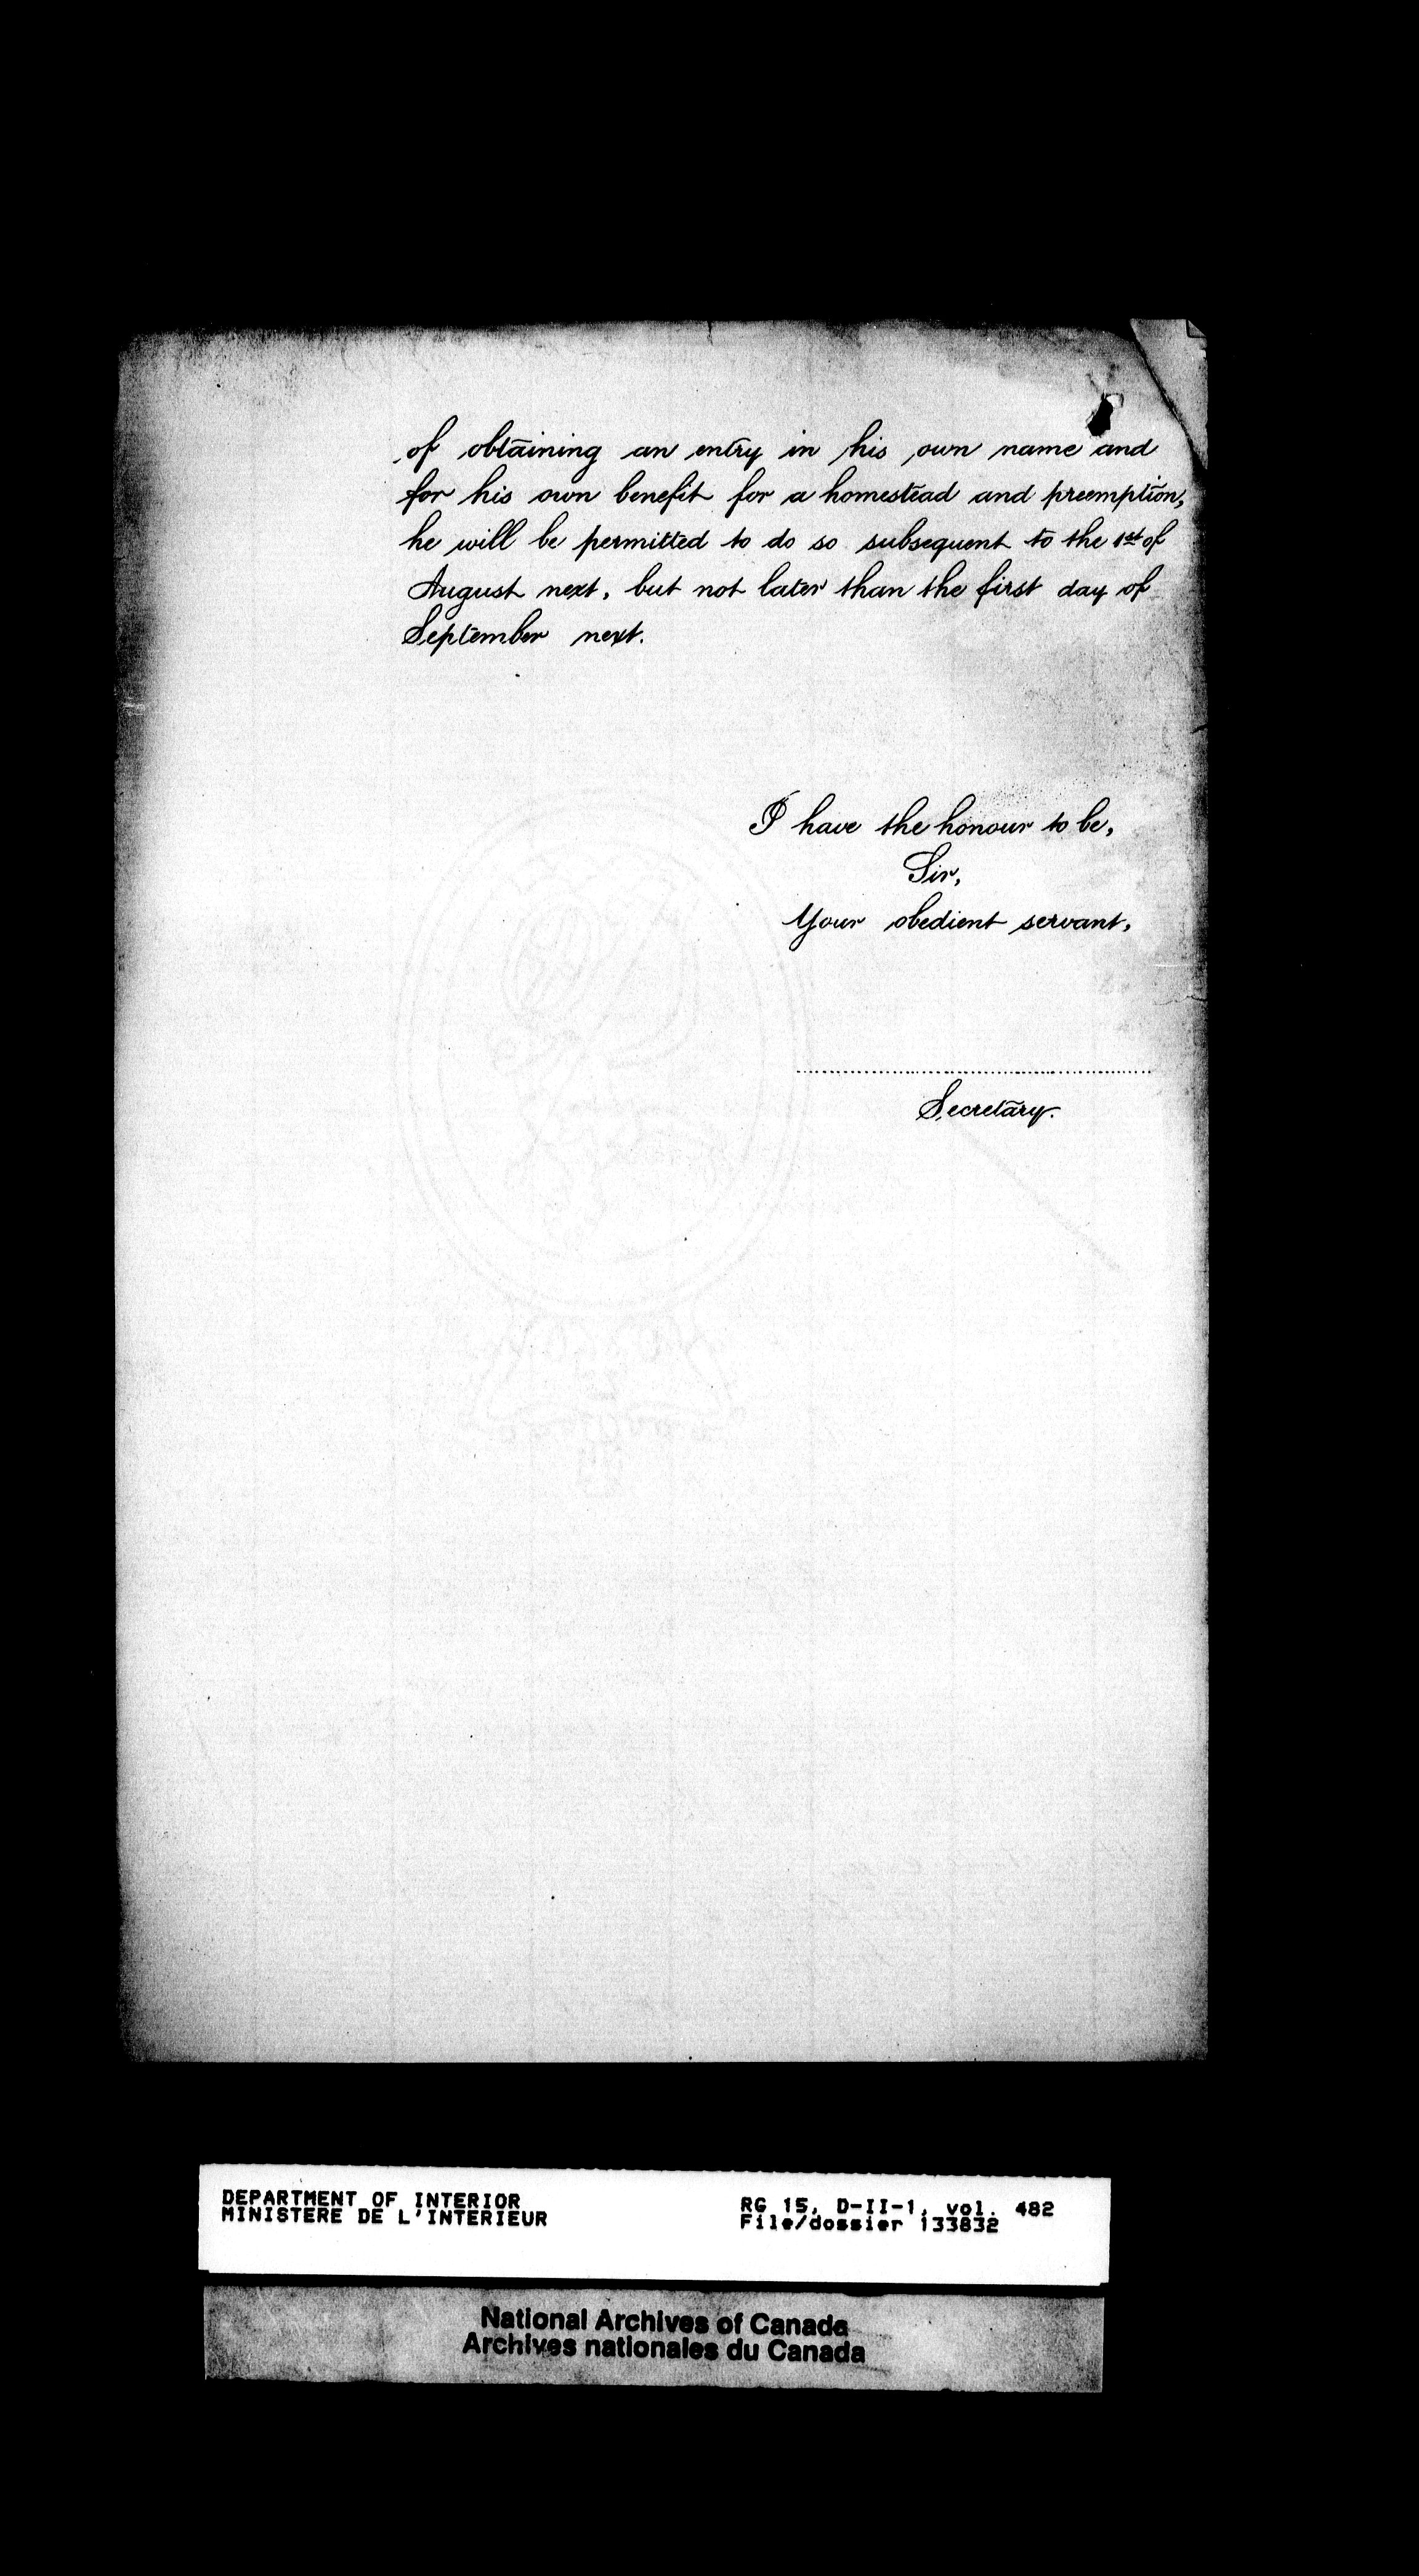 of obtaining an entry in his own name and
for his own benefit for a homestead and preemption,
he will be permitted to do so subsequent to the 1st of
August next, but not later than the first day of
September next.
I have the honour to be,
Sir,
Your obedient servant,
Secretary.
DEPARTMENT OF INTERIOR
MINISTERE DE L'INTERIEUR
RG 15, D-II-1, vol. 482
File/dossier 133832
National Archives of Canada
Archives nationales du Canada